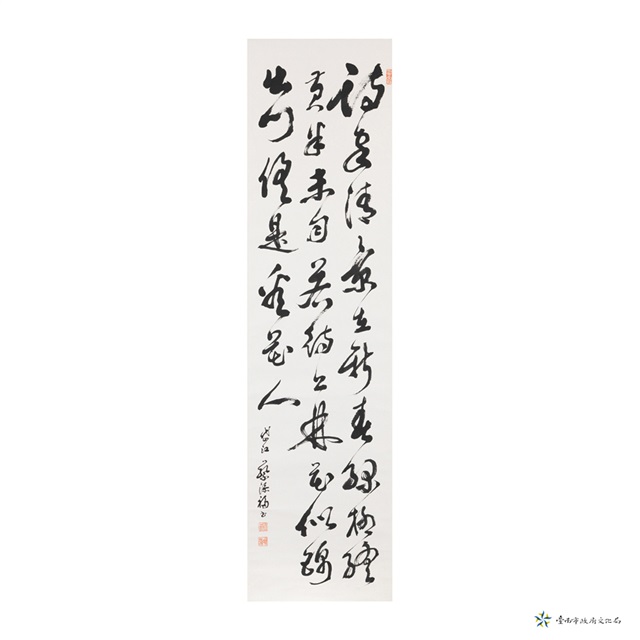 詩家清景在新春綠柳纔
黃半未勻若待上林花似錦
出門俱是看花人
岱江 蔡 福書
臺南市政府文化局